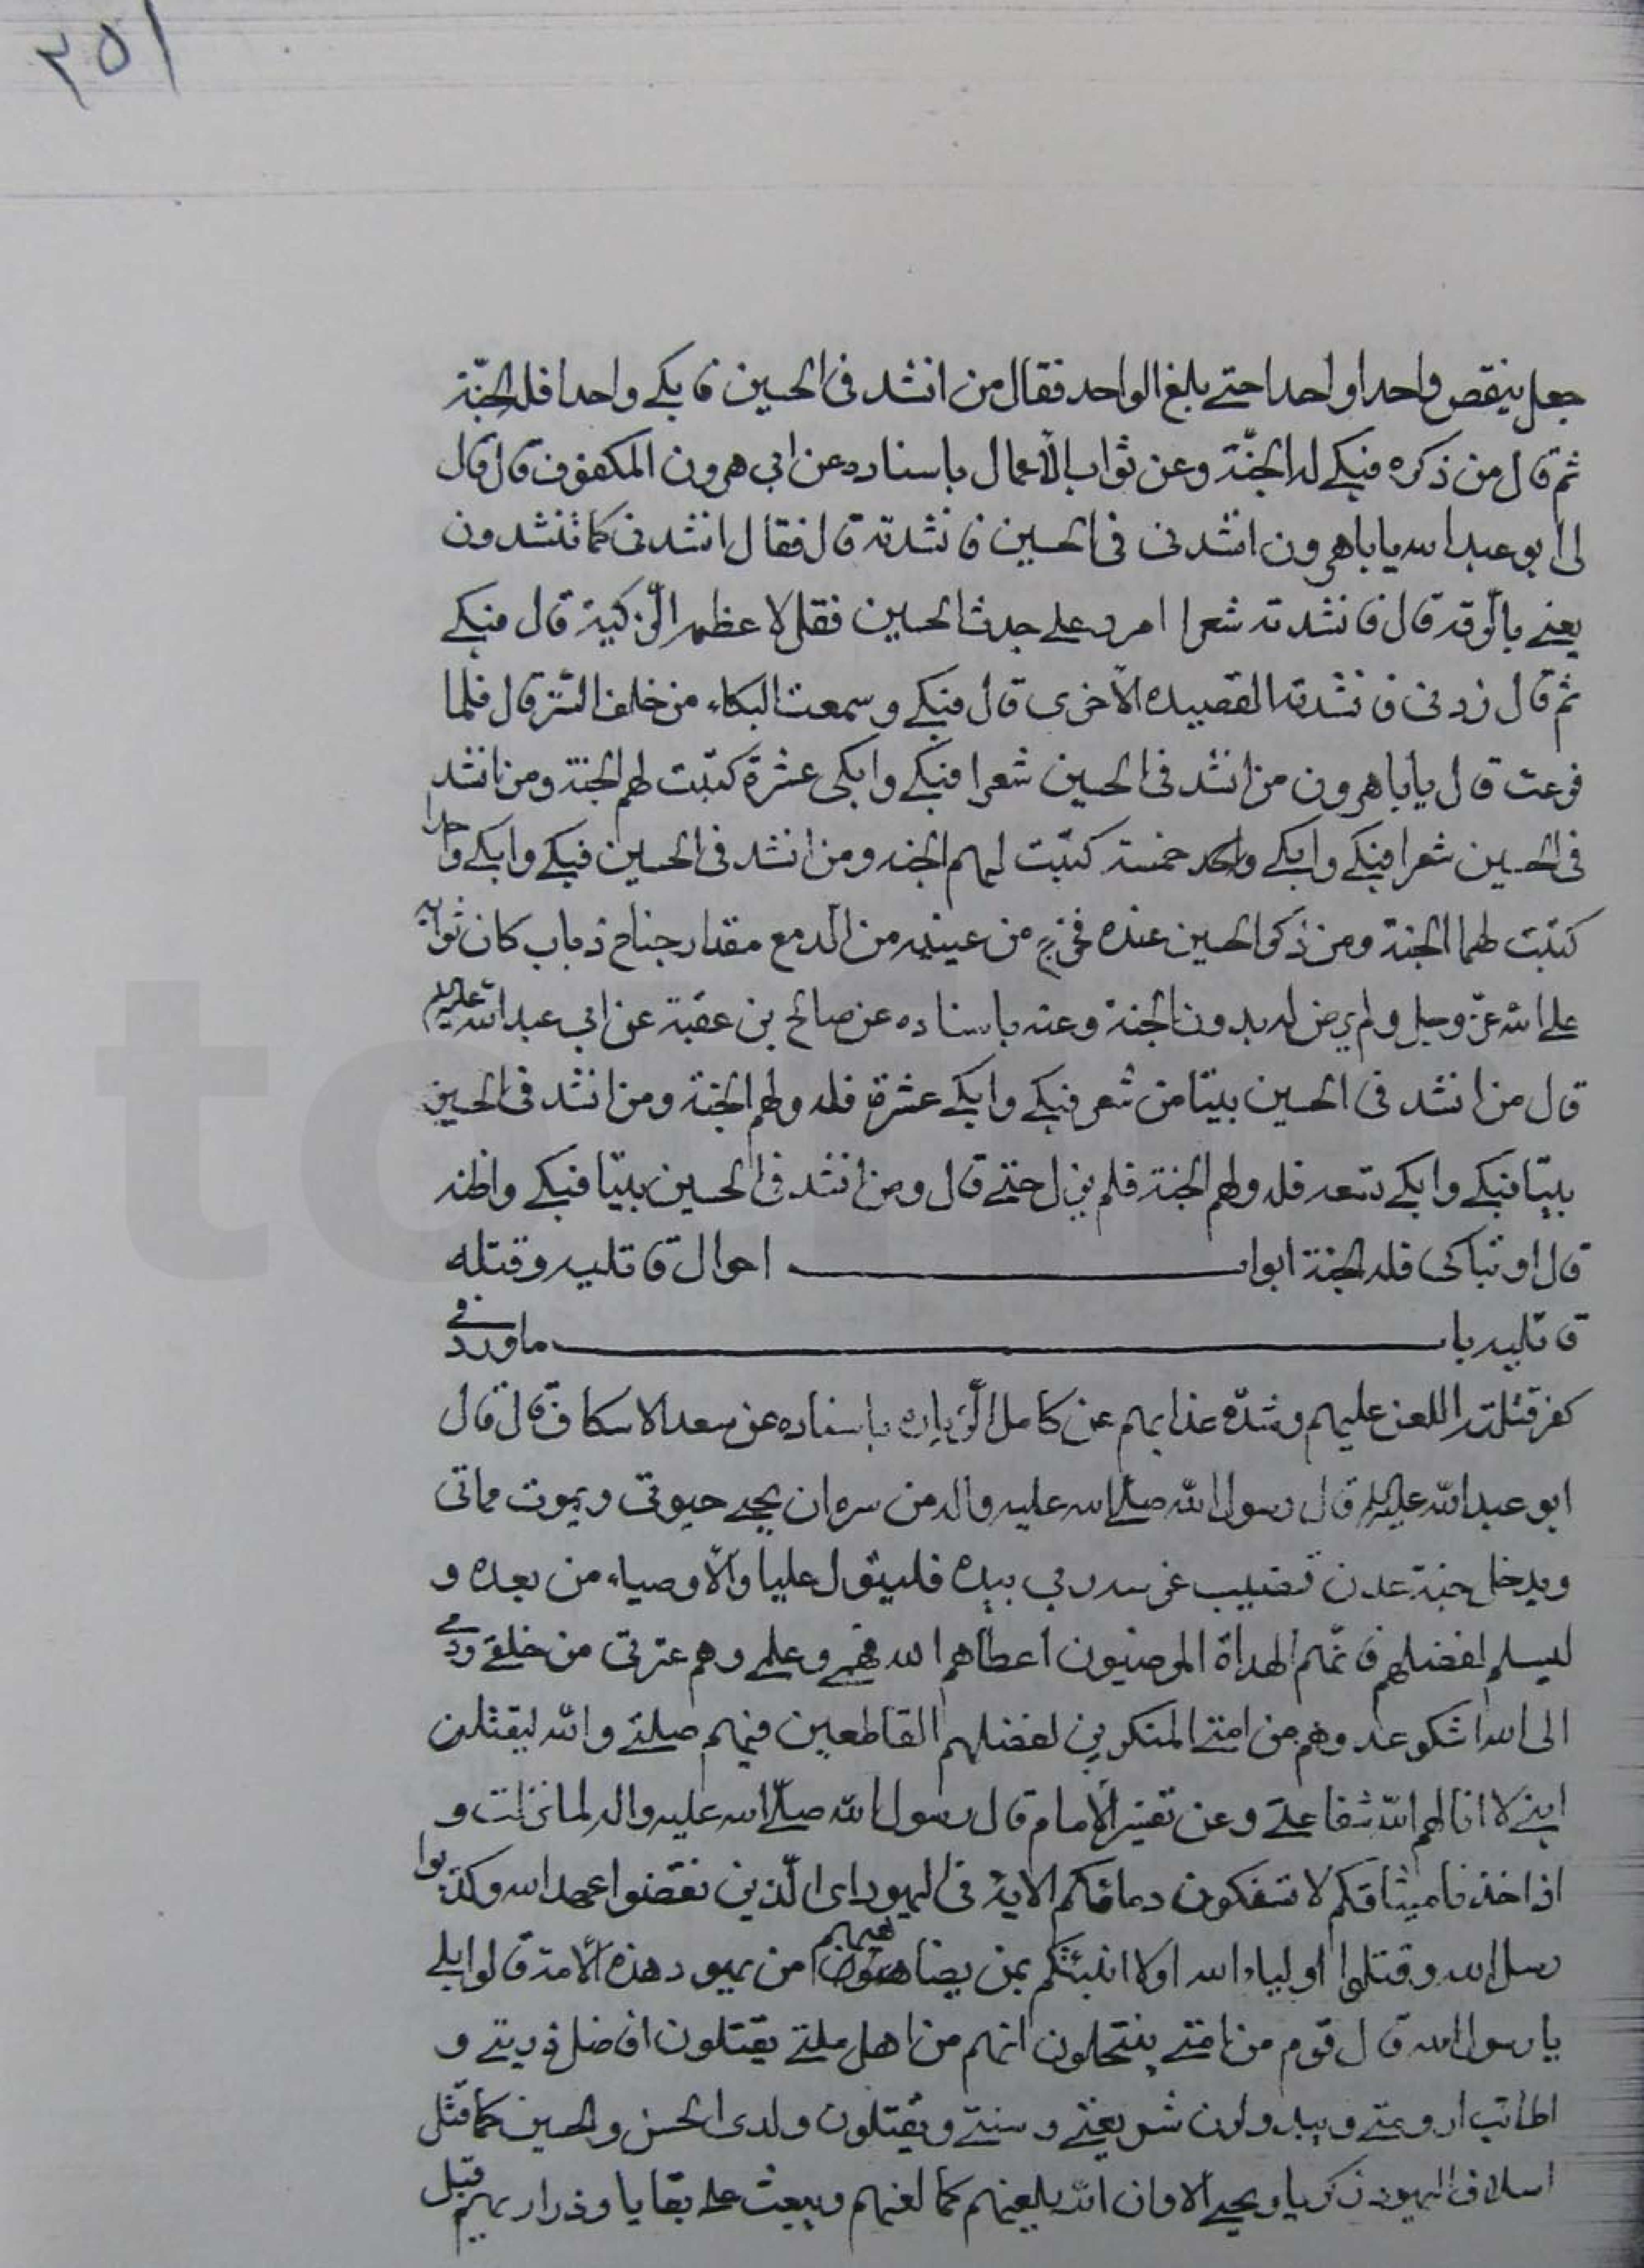 ٢٥١
جعل ينقص واحدا واحدا حتى بلغ الواحد فقال من انشد فى الحسين فابكى واحدا فله الجنّة
ثم قال من ذكره فبكى له الجنّة وعن ثواب الأعمال باسناده عن ابي هرون المكفوف قال قال
لى ابو عبد الله يا باهرون انشدنى فى الحسين فانشدته قال فقال انشدنى كما تنشدون
يعنى بالرّقة قال فانشدته شعرا امرر على جدث الحسين فقل لاعظمه الزّكية قال فبكى
ثم قال زدنى فانشدته القصيده الأخرى قال فبكى وسمعت البكاء من خلف الستر قال فلما
فرغت قال يا باهرون من انشد فى الحسين شعرا فبكى وابكى عشرة كتبت لهم الجنة ومن انشد
فى الحسين شعرا فبكى وابكى خمسة كتبت لهم الجنه ومن انشد فى الحسين فبكى وابكى واحدا
كتبت لهما الجنة ومن ذكر الحسين عنده فخرج من عينيه من الدمع مقدار جناح ذباب كان ثوابه
على الله عزّ وجل ولم يرض له بدون الجنة وعنه باسناده عن صالح بن عقبة عن ابي عبد الله عليه السلام
قال من انشد فى الحسين بيتا من شعر فبكى وابكى عشرة فله ولهم الجنة ومن انشد فى الحسين
بيتا فبكى وابكى تسعه فله ولهم الجنة فلم يزل حتى قال ومن انشد فى الحسين بيتا فبكى واظنه
قال او تباكى فله الجنة ابواب احوال قاتليه وقتله
قاتليه باب ما ورد فى
كفر قتلته اللعن عليهم وشدّة عذابهم عن كامل الزّياره باسناده عن سعد الاسكاف قال قال
ابو عبد الله عليه السلام قال رسول الله صلى الله عليه واله من سره ان يحيى حيوتى ويموت مماتى
ويدخل جنة عدن قضيب غرسه ربي بيده فليتول عليا والأوصياء من بعده و
ليسلم لفضلهم فانّهم الهداة المرضيون اعطاهم الله فهمى وعلمى وهم عترتى من خلقى ودمى
الى الله اشكو عدوهم من امتى المنكرين لفضلهم القاطعين فيهم صلتى والله ليقتلن
ابنى لا انالهم الله شفاعتى وعن تفسير الأمام قال رسول الله صلى الله عليه واله لما نزلت و
اذ اخذنا ميثاقكم لا تسفكون دمائكم الاية فى اليهود اى الّذين نقضوا عهد الله وكذبوا
رسل الله وقتلوا اولياء الله اولا انبئكم بمن يضاهيهم من يهود هذه الأمة قالوا بلى
يا رسول الله قال قوم من امتى ينتحلون انهم من اهل ملتى يقتلون افاضل ذريتى و
اطائب ارومتى ويبدلون شريعتى وسنتى ويقتلون ولدى الحسن والحسين كما قتل
اسلاف اليهود زكريا ويحيى الا وان الله يلعنهم كما لعنهم ويبعث على بقايا وذراريهم قبل